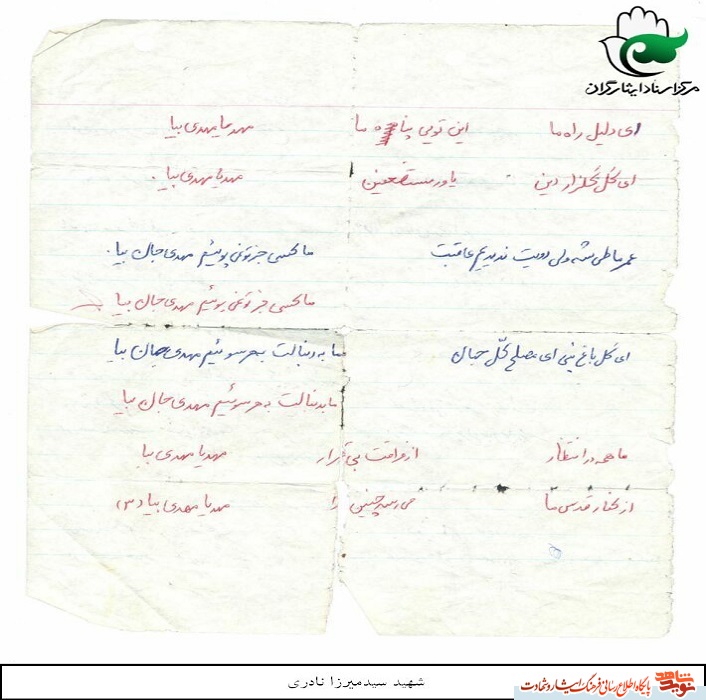 مرکز اسناد ایثارگران
ای دلیل راه ما این تویی پناه ما مهدیا مهدی بیا
ای گل گلزار دین یاور مستضعفین مهدیا مهدی بیا.
عمر ما طی شد ولی رویت ندیدیم عاقبت ما کسی جز تو نمی‌پوئیم مهدی جان بیا.
ما کسی جز تو نمی‌پوئیم مهدی جان بیا
ای گل باغ نبی ای مصلح کل جهان ما به دنبالت به هر سوئیم مهدی جان بیا
ما به دنبالت به هر سوئیم مهدی جان بیا
ما همه در انتظار از فراقت بی قرار مهدیا مهدی بیا
از کنار قدس ما می‌رسد چنین مهدیا مهدی بیا (۳)
شهید سیدمیرزا نادری
نوید شاهد پایگاه اطلاع رسانی فرهنگ ایثار و شهادت